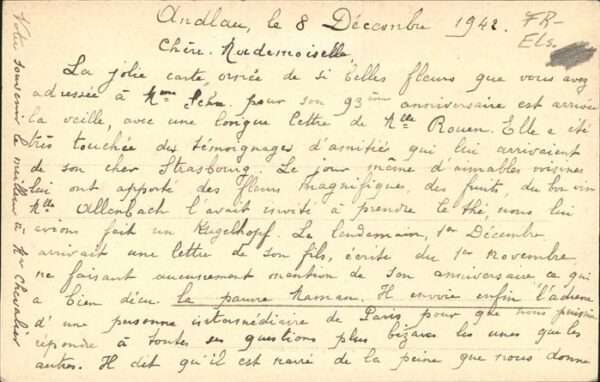 Andlau, le 8 Décembre 1942.
FR-
Els.
Chère Mademoiselle,
La jolie carte, ornée de si belles fleurs que vous avez
adressée à Mme pour son 93ième anniversaire est arrivée
la veille, avec une longue lettre de Mlle Rouen. Elle a été
très touchée des témoignages d'amitiés qui lui arrivaient
de son cher Strasbourg. Le jour même d'aimables voisines
lui ont apporté des fleurs magnifiques, des fruits, du bon vin
Mlle Allenbach l'avait invité à prendre le thé, nous lui
avions fait un Kugelhopf. Le lendemain, 1er Décembre
arrivait une lettre de son fils, écrite du 1er Novembre
ne faisant aucunement mention de son anniversaire, ce qui
a bien déçu la pauvre Maman. Il envoie enfin l'adresse
d'une personne intermédiaire de Paris pour que nous puissions
répondre à toutes ses questions plus bizares les unes que les
autres. Il dit qu'il est navré de la peine que nous donne
Votre souvenir le meilleur à Mr Chevalier